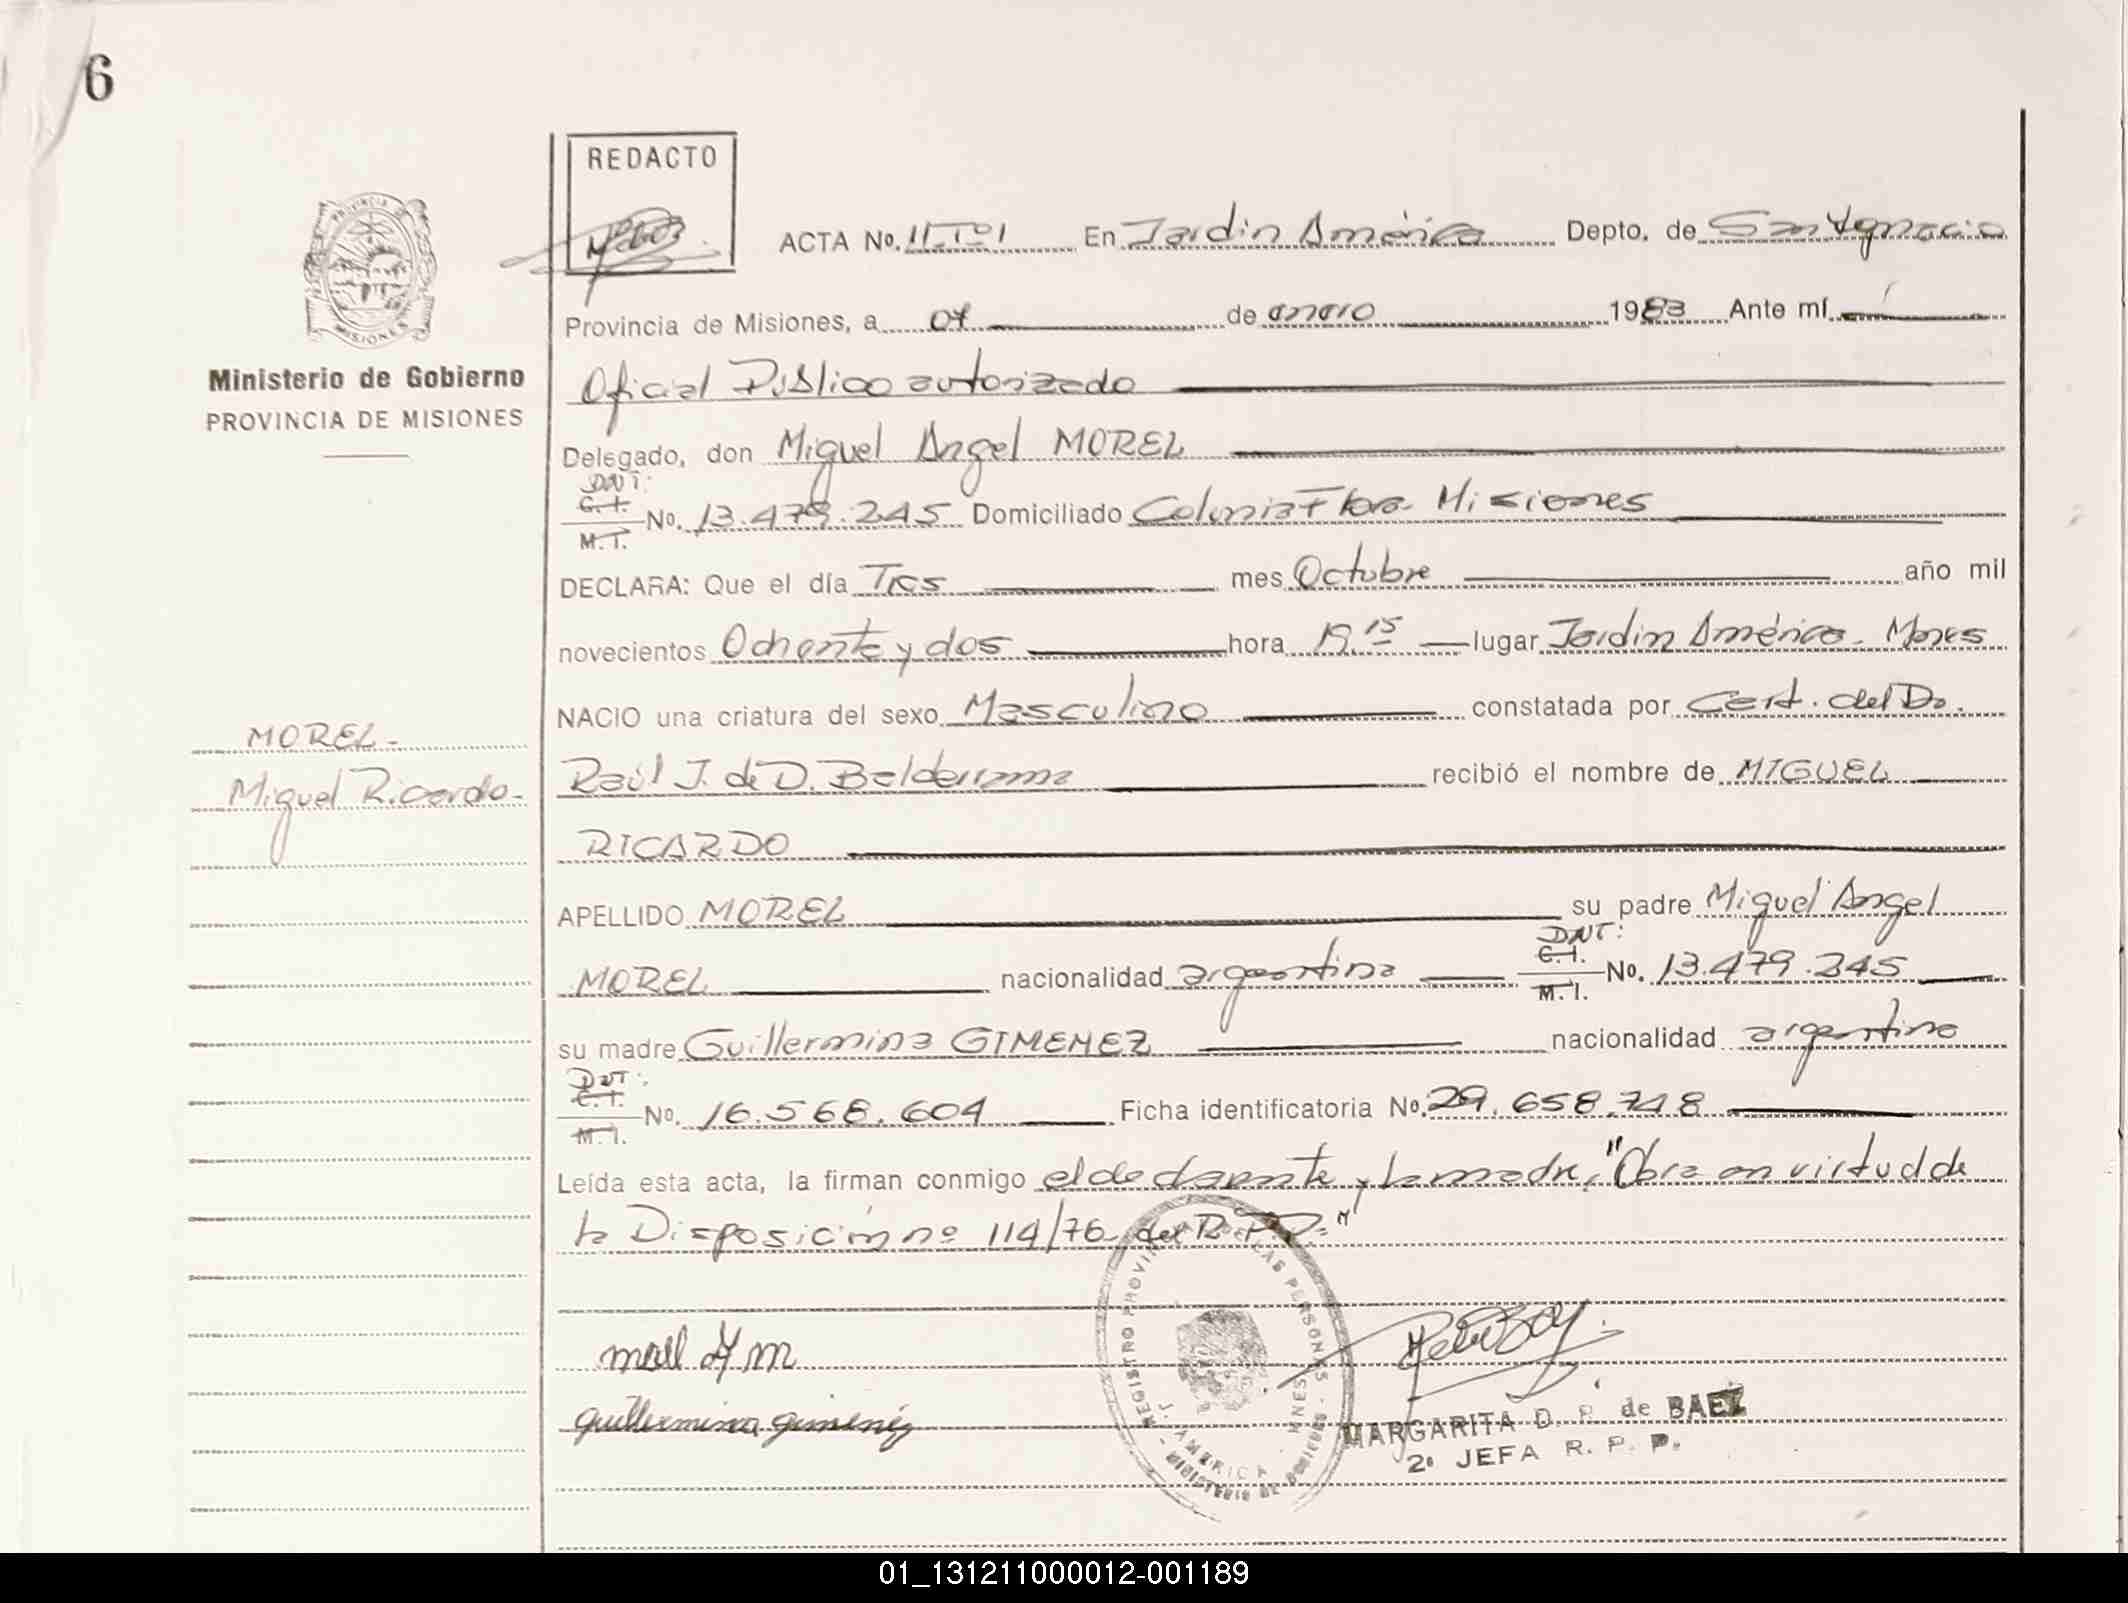 6
REDACTO
ACTA No. 11.Tº1 En Jardin América Depto. de San Ignacio
Provincia de Misiones, a 07 de enero 1983 Ante mí
Ministerio de Gobierno
PROVINCIA DE MISIONES
Oficial Público autorizado
Delegado, don Miguel Angel MOREL
DNI:
C.I.
No. 13.479.245 Domiciliado Colonia Flora - Misiones
M.I.
DECLARA: Que el día Tres mes Octubre año mil
novecientos Ochenta y dos hora 19.15 lugar Jardin América - Mnes
NACIO una criatura del sexo Masculino constatada por Cert. del Dr.
MOREL -
Raúl J. de D. Balderrama recibió el nombre de MIGUEL
Miguel Ricardo -
RICARDO
APELLIDO MOREL su padre Miguel Angel
DNI:
C.I.
MOREL nacionalidad argentina No. 13.479.245
M.I.
su madre Guillermina GIMENEZ nacionalidad argentina
DNI:
C.I.
No. 16.568.604 Ficha identificatoria No. 29.658.748
M.I.
Leída esta acta, la firman conmigo el declarante y la madre, "Obra en virtud de
la Disposición nº 114/76 del R.P.P."
REGISTRO PROVINCIAL DE LAS PERSONAS
J. AMERICA
MNES
guillermina gimenéz
MARGARITA D. P. de BAEZ
2º JEFA R. P. P.
01_131211000012-001189